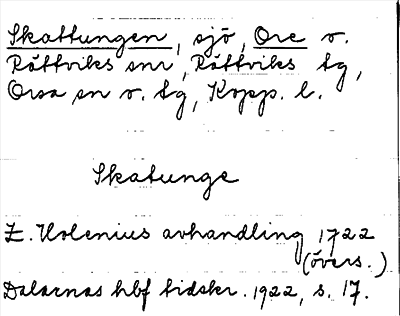 Skattungen, sjö, Ore o.
Rättviks snr, Rättviks tg,
Orsa sn o. tg, Kopp. l.
Skatunge
E. Holenius avhandling 1722
(övers.)
Dalarnas hbf tidskr. 1922, s. 17.